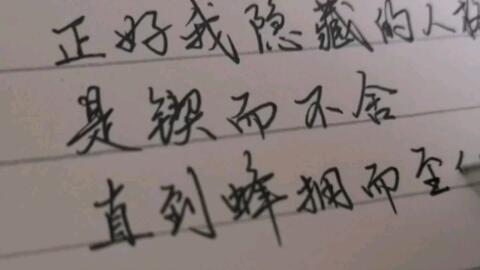 正好我隐藏的人
是锲而不舍
直到蜂拥而至